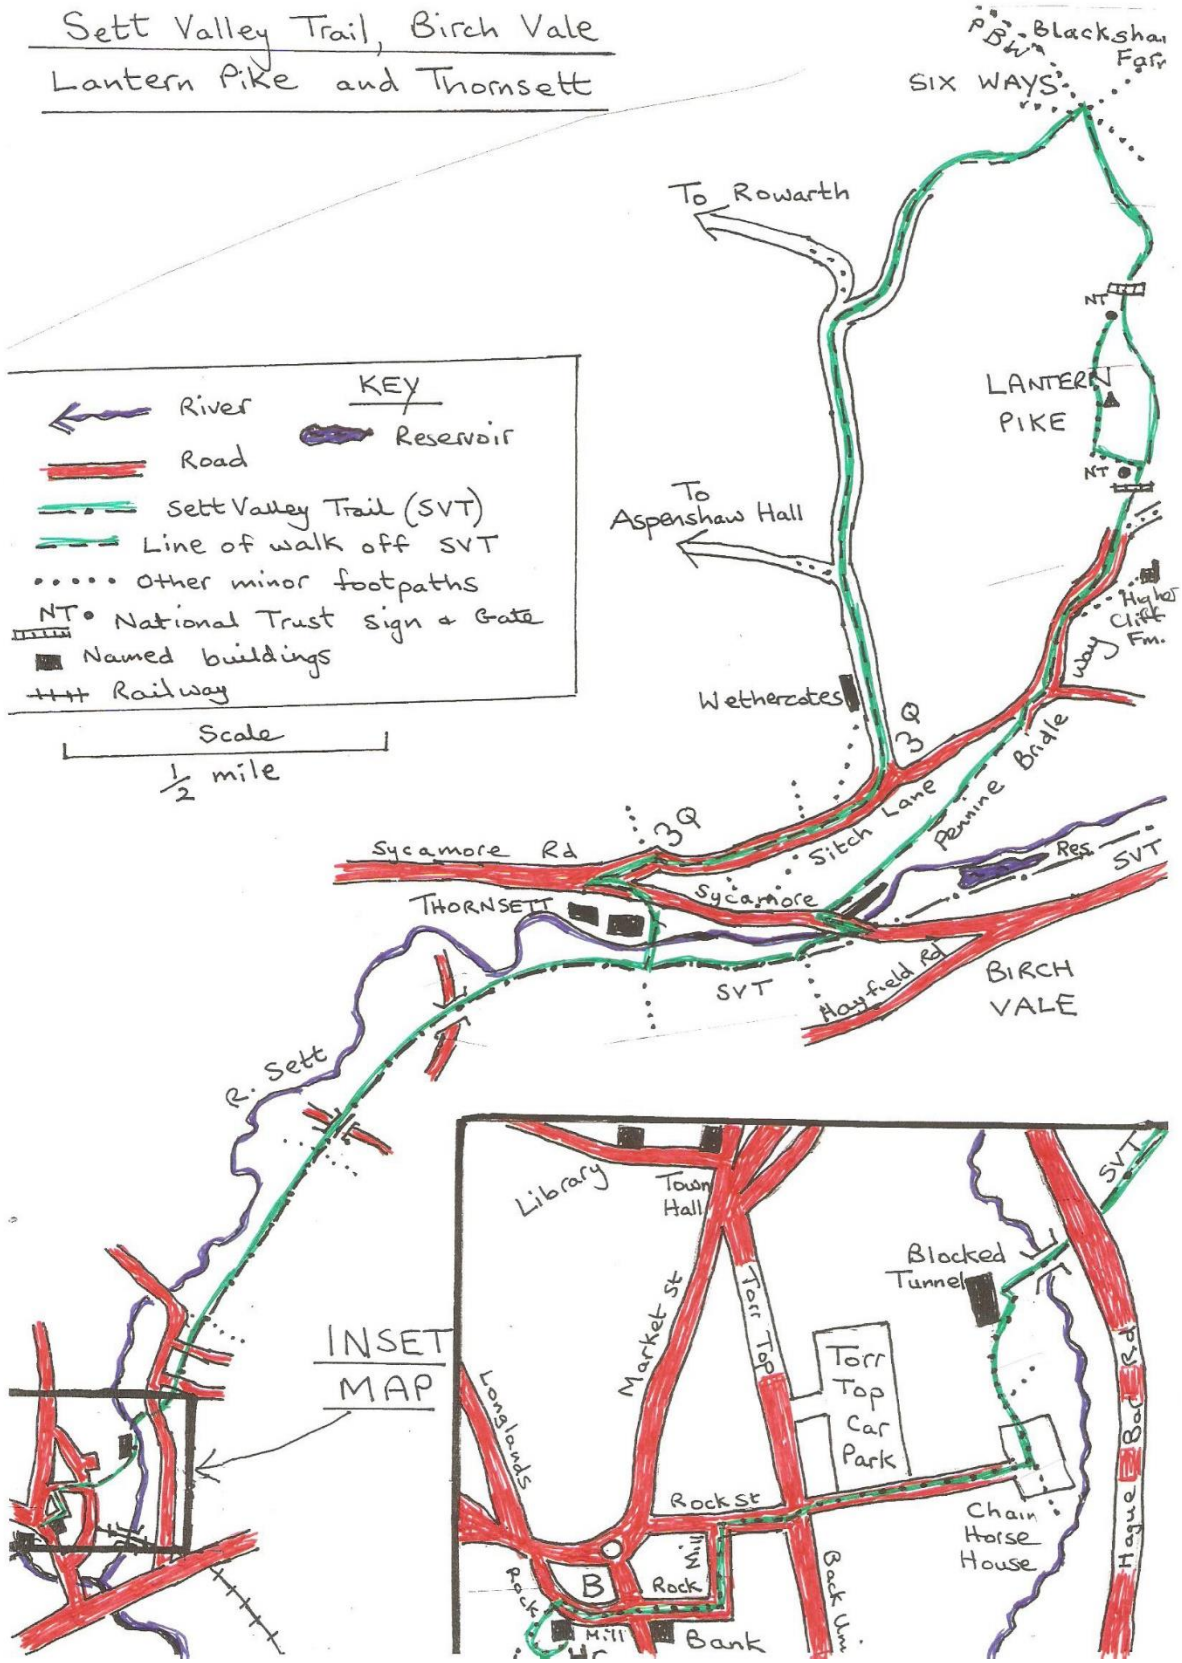 Sett Valley Trail, Birch Vale
Lantern Pike and Thornsett
PBW
Blacksha
Farr
SIX WAYS
To Rowarth
NT
LANTERN
PIKE
NT
KEY
River
Reservoir
Road
Sett Valley Trail (SVT)
Line of walk off SVT
Other minor footpaths
NT National Trust Sign & Gate
Named buildings
Railway
Scale
1/2 mile
To
Aspenshaw Hall
Higher
Cliff
Fm.
Way
Wethercotes
3Q
Bridle
Pennine
Sitch Lane
3Q
Sycamore Rd
Sycamore
Res.
SVT
THORNSETT
SVT
Hayfield Rd
BIRCH
VALE
R. Sett
INSET
MAP
Library
Town
Hall
SVT
Blocked
Tunnel
Market St
Torr Top
Torr
Top
Car
Park
Longlands
Hague Bar Rd
Rock St
Chain
Horse
House
Mill
B
Rock
Rock
Mill
Bank
Back Un.